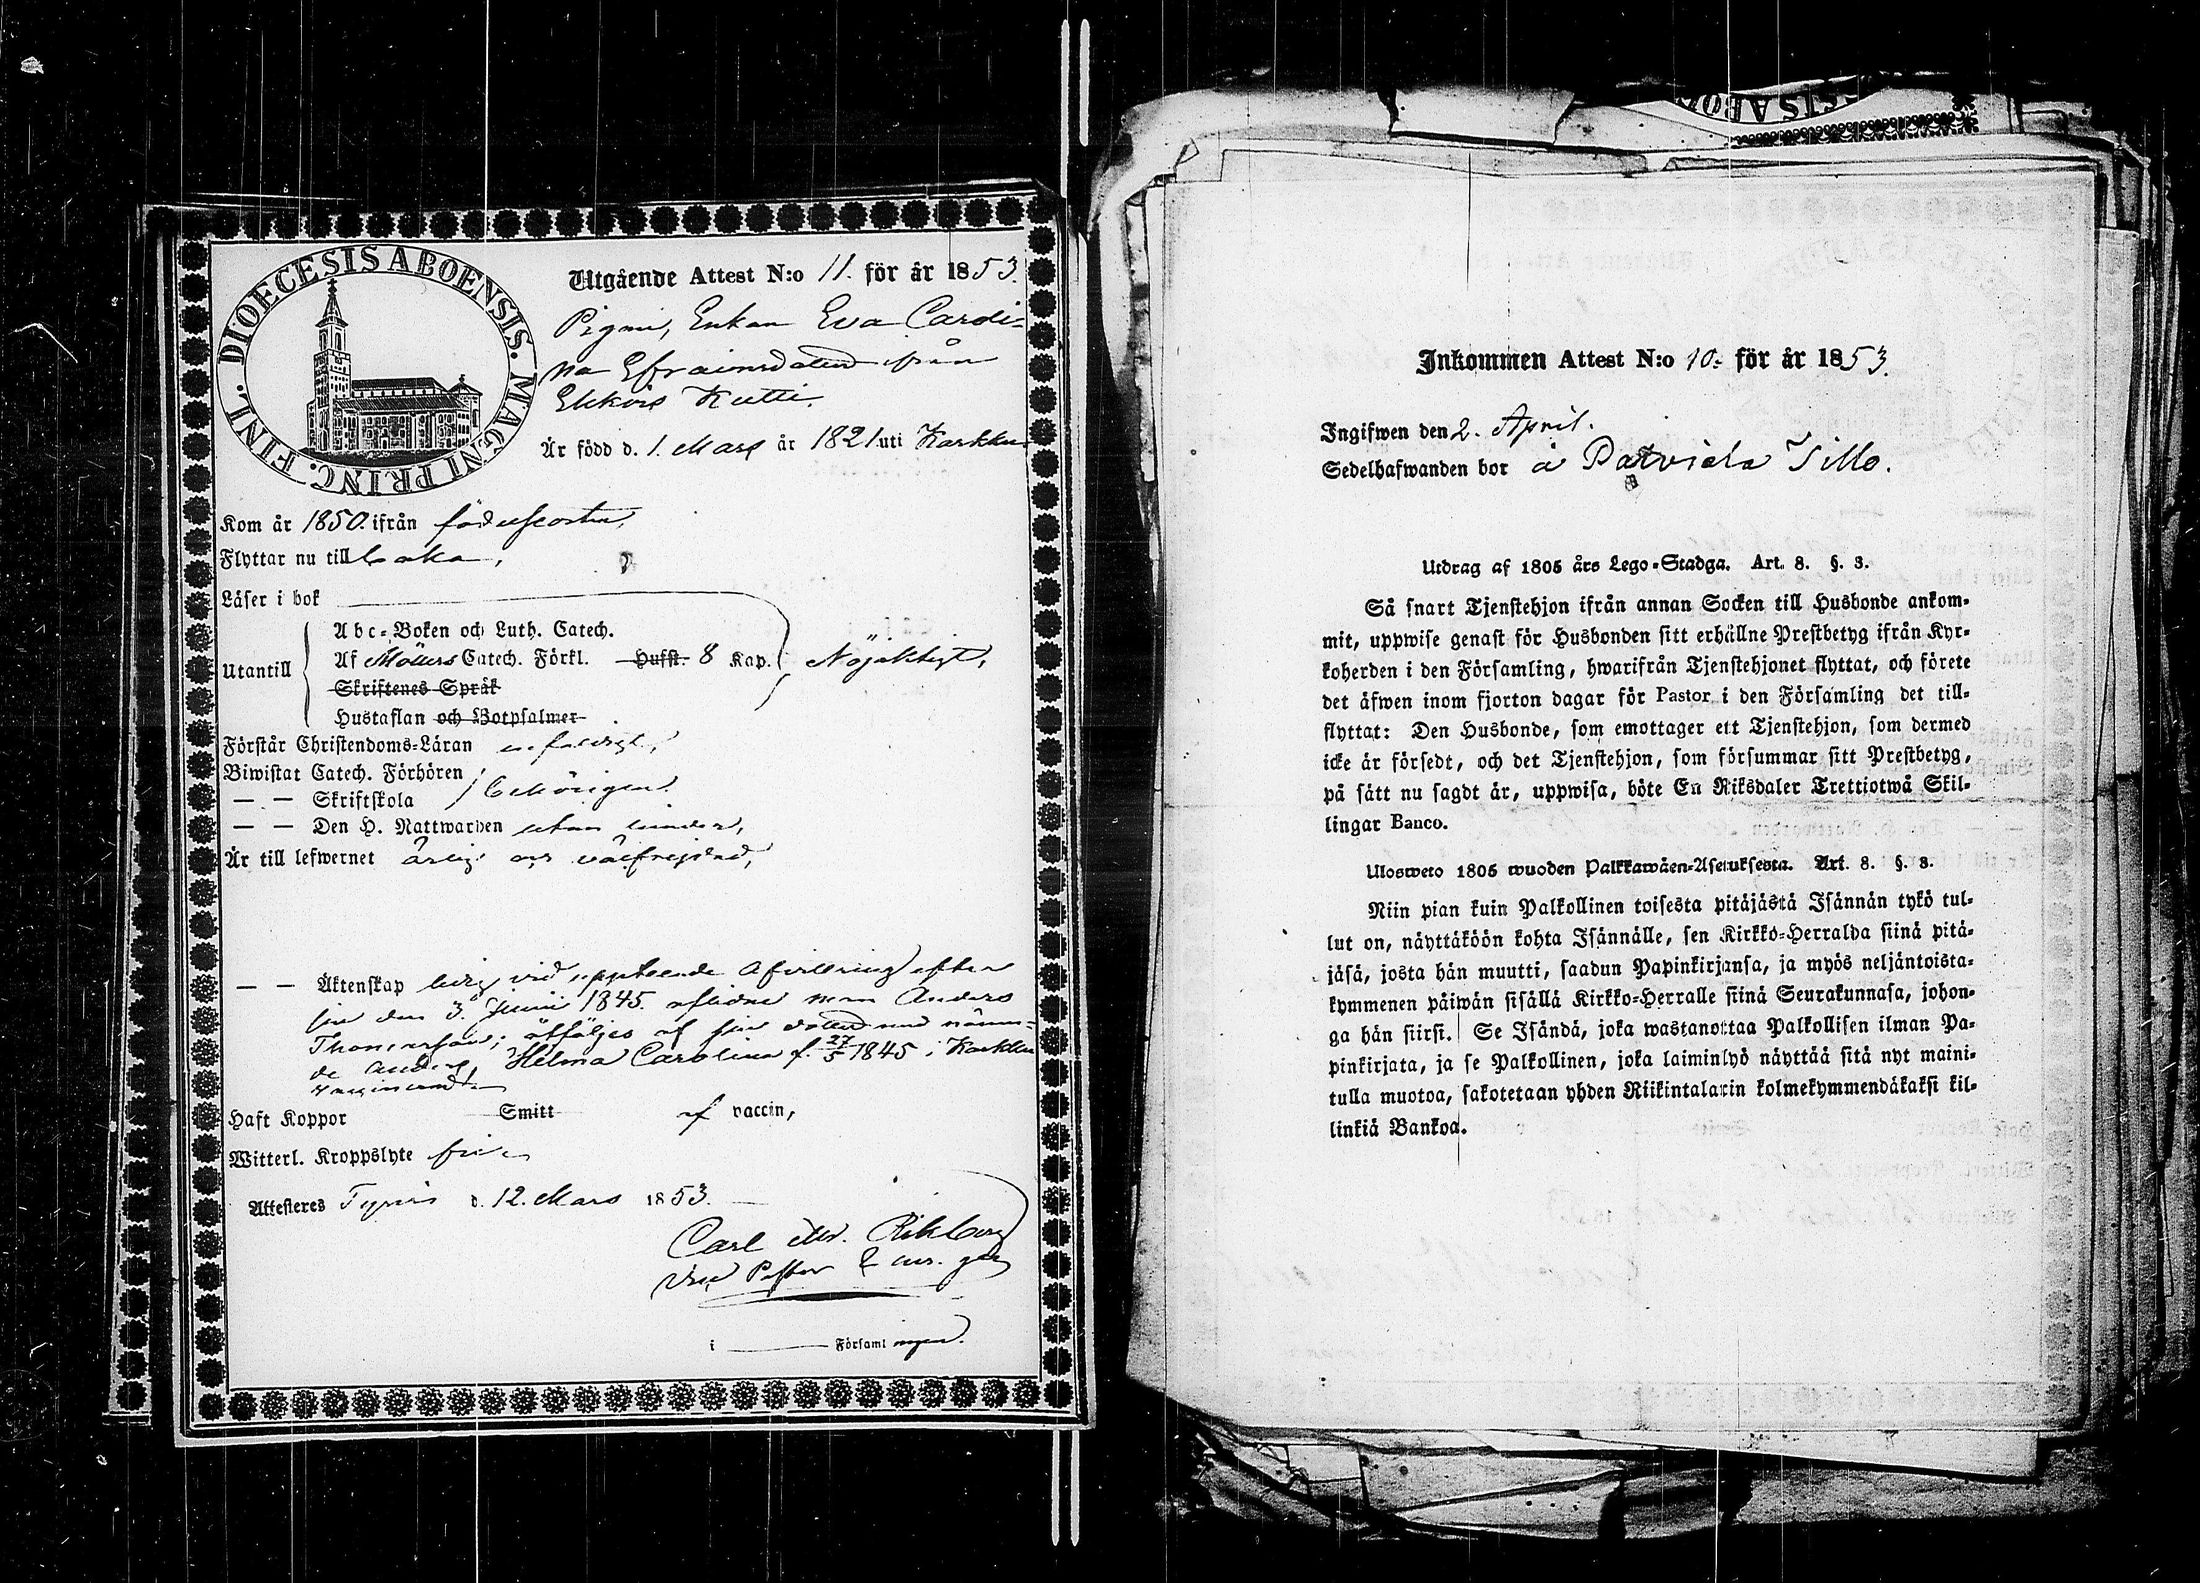 DIOECESIS ABOENSIS. MAGNI PRINC. FINL.
Utgående Attest N:o 11. för år 1853.
Pigan, Enkan Eva Caroli-
na Efraimsdotter ifrån
Ekkois Kutti.
Är född d. 1. Mars år 1821 uti Karkku
Kom år 1850. ifrån födelseorten,
Flyttar nu till
Läser i bok
Abc-Boken och Luth. Catech.
Utantill Af Möllers Catech. Förkl. Hufst. 8 Kap. Nöjaktigt,
Skriftenes Språk
Hustaflan och Botpsalmer
Förstår Christendoms-Läran enfaldigt,
Biwistat Catech. Förhören
— — Skriftskola behörigen.
— — Den H. Nattwarden utan hinder,
Är till lefwernet ärlig och välfrejdad,
— — Äktenskap ledig vid uppteende afvittring efter
sin den 3. Junii 1845. aflidne man Anders
Thomasson; åtföljes af sin dotter med nämn-
de Anders, Helma Carolina f. 27/5 1845 i Karkku
vaccinerad
Haft Koppor Smitt af vaccin,
Witterl. Kroppslyte fri
Attesteres Tyrvis d. 12. Mars 1853.
Carl M. Rikberg
Vice Pastor
i Församlingen.
CIS ABO
Inkommen Attest N:o 10. för år 1853.
Ingifwen den 2. April.
Sedelhafwanden bor å Parviela Tillo.
Utdrag af 1805 års Lego-Stadga. Art. 8. §. 3.
Så snart Tjenstehjon ifrån annan Socken till Husbonde ankom-
mit, uppwise genast för Husbonden sitt erhållne Prestbetyg ifrån Kyr-
koherden i den Församling, hwarifrån Tjenstehjonet flyttat, och förete
det äfwen inom fjorton dagar för Pastor i den Församling det till-
flyttat: Den Husbonde, som emottager ett Tjenstehjon, som dermed
icke är försedt, och det Tjenstehjon, som försummar sitt Prestbetyg,
på sätt nu sagdt är, uppwisa, böte En Riksdaler Trettiotwå Skil-
lingar Banco.
Ulosweto 1805 wuoden Palkkawäen-Asetuksesta. Art. 8. §. 3.
Niin pian kuin Palkollinen toisesta pitäjästä Isännän tykö tul-
lut on, näyttäköön kohta Isännälle, sen Kirkko-Herralda siinä pitä-
jäsä, josta hän muutti, saadun Papinkirjansa, ja myös neljäntoista-
kymmenen päiwän sisällä Kirkko-Herralle siinä Seurakunnasa, johon-
ga hän siirsi. Se Isändä, joka wastanottaa Palkollisen ilman Pa-
pinkirjata, ja se Palkollinen, joka laiminlyö näyttää sitä nyt maini-
tulla muotoa, sakotetaan yhden Riikintalarin kolmekymmendäkaksi kil-
linkiä Bankoa.